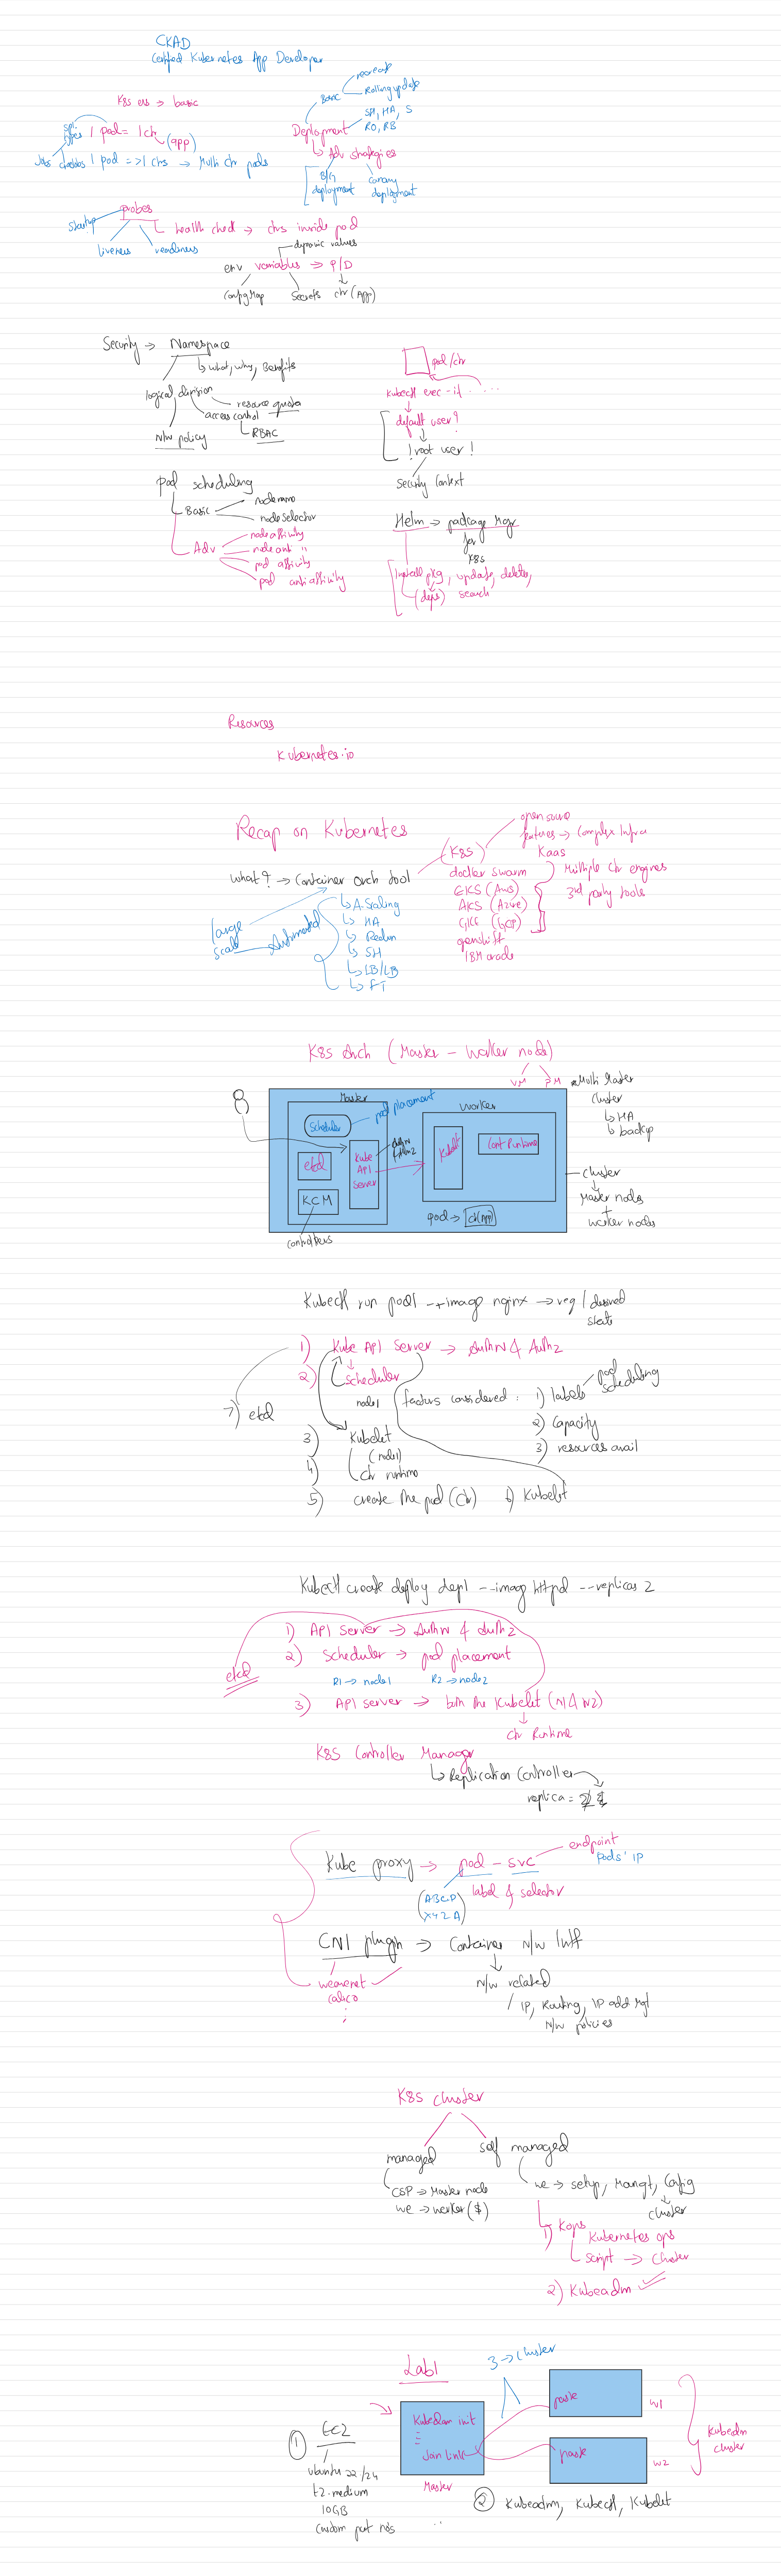 CKAD
Certified Kubernetes App Developer
K8s ess → basic
1 pod = 1 ctr
(app)
1 pod => 1 ctrs → Multi ctr pods
Basic
recreate
Rolling update
Deployment
SH, HA, S
RO, RB
Adv strategies
B/G
deployment
Canary
deployment
probes
startup
liveness
readiness
health check → ctrs inside pod
dynamic values
env variables → P/D
ConfigMap
Secrets
ctr (App)
Security → Namespace
what, why, Benefits
logical division
resource quota
access control
RBAC
N/w policy
pod/ctr
kubectl exec -it ....
default user?
! root user !
Security Context
pod scheduling
Basic
nodename
nodeSelector
Adv
node affinity
node anti "
pod affinity
pod antiaffinity
Helm → package Mgr
for
K8s
Install pkg, update, delete,
(deps) search
Resources
Kubernetes.io
Recap on Kubernetes
what? → Container orch tool
large
scale
Automated
A. Scaling
HA
SH
LB/LB
FT
(K8S)
docker swarm
EKS (AWS)
AKS (Azure)
GKE (GCP)
openshift
IBM oracle
open source
features → Complex Infra
KaaS
Multiple Ctr engines
3rd party tools
K8s Arch (Master - Worker node)
VM
PM
Master
Scheduler
pod placement
etcd
Kube
API
Server
KCM
controllers
Worker
Kubelet
Cont Runtime
pod → ctr(App)
Multi Master
cluster
HA
backup
cluster
Master nodes
+
worker nodes
Kubectl run pod1 --image nginx → req / desired
state
1) Kube API Server → AuthN & AuthZ
2) Scheduler
node1
factors considered : 1) labels
pod
scheduling
2) Capacity
3) resources avail
7) etcd
3) Kubelet
(node1)
4) Ctr runtime
5) create the pod (Ctr)
6) Kubelet
Kubectl create deploy dep1 --image httpd --replicas 2
1) API Server → AuthN & AuthZ
2) Scheduler → pod placement
etcd
R1 → node1
R2 → node2
3) API server → both the Kubelet (N1 & N2)
Ctr Runtime
K8S Controller Manager
Replication Controller
replica = 2
Kube proxy → pod - svc
endpoint
Pods' IP
label & selector
CNI plugin → Container N/w Intf
weavenet
calico
N/w related
IP, Routing, IP add Mgt
N/w policies
K8S cluster
managed
self managed
CSP → Master node
we → worker ($)
we → setup, Mangt, Config
cluster
1) Kops
Kubernetes ops
script → cluster
2) Kubeadm
Lab1
3 → cluster
1 EC2
ubuntu 22/24
t2.medium
10GB
custom port nos
Kubeadm init
Join link
Master
paste
w1
paste
w2
Kubeadm
cluster
2 Kubeadm, Kubectl, Kubelet